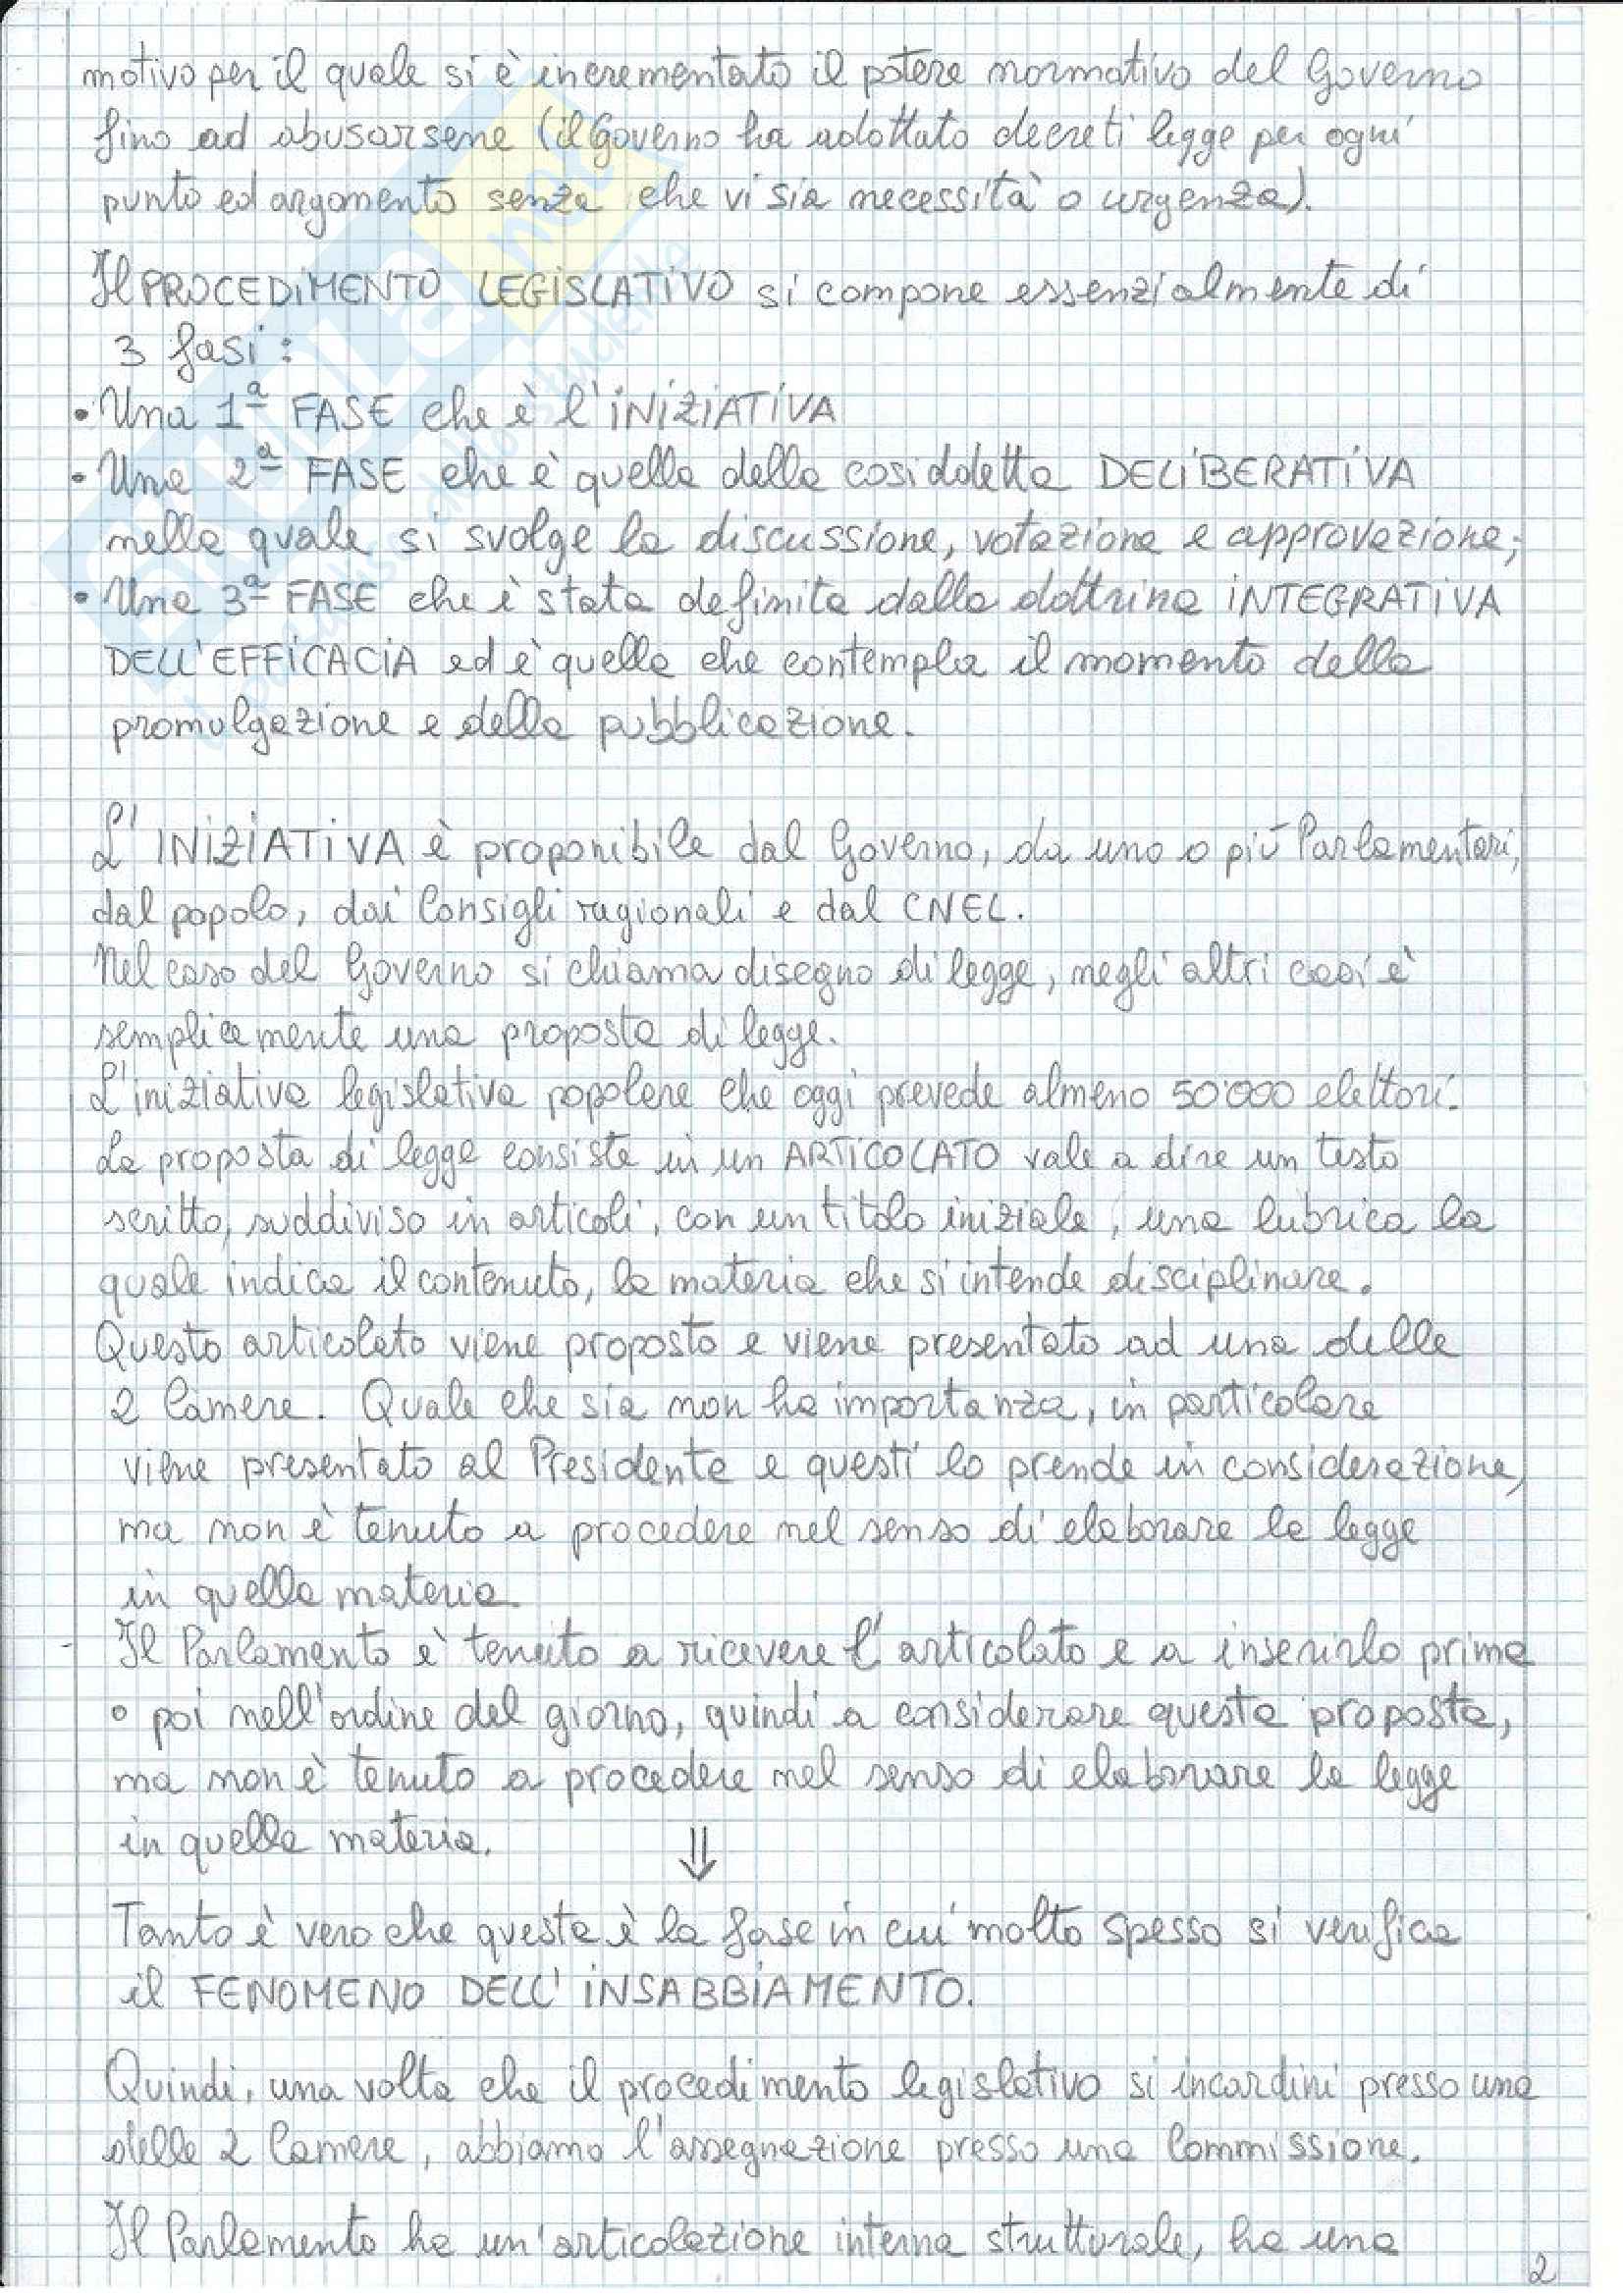 motivo per il quale si è incrementato il potere normativo del Governo
fino ad abusarsene (il Governo ha adottato decreti legge per ogni
punto ed argomento senza che vi sia necessità o urgenza).
Il PROCEDIMENTO LEGISLATIVO si compone essenzialmente di
3 fasi:
• Una 1ª FASE che è l'INIZIATIVA
• Una 2ª FASE che è quella della cosiddetta DELIBERATIVA
nella quale si svolge la discussione, votazione e approvazione;
• Una 3ª FASE che è stata definita dalla dottrina INTEGRATIVA
DELL'EFFICACIA ed è quella che contempla il momento della
promulgazione e della pubblicazione.
L'INIZIATIVA è proponibile dal Governo, da uno o più Parlamentari,
dal popolo, dai Consigli regionali e dal CNEL.
Nel caso del Governo si chiama disegno di legge, negli altri casi è
semplicemente una proposta di legge.
L'iniziativa legislativa popolare che oggi prevede almeno 50'000 elettori.
La proposta di legge consiste in un ARTICOLATO vale a dire un testo
scritto, suddiviso in articoli, con un titolo iniziale, una lubrica la
quale indica il contenuto, la materia che si intende disciplinare.
Questo articolato viene proposto e viene presentato ad una delle
2 Camere. Quale che sia non ha importanza, in particolare
viene presentato al Presidente e questi lo prende in considerazione,
ma non è tenuto a procedere nel senso di elaborare la legge
in quella materia.
- Il Parlamento è tenuto a ricevere l'articolato e a inserirlo prima
o poi nell'ordine del giorno, quindi a considerare questa proposta,
ma non è tenuto a procedere nel senso di elaborare la legge
in quella materia. ⇓
Tanto è vero che questa è la fase in cui molto spesso si verifica
il FENOMENO DELL'INSABBIAMENTO.
Quindi, una volta che il procedimento legislativo si incardini presso una
delle 2 Camere, abbiamo l'assegnazione presso una Commissione.
Il Parlamento ha un'articolazione interna strutturale, ha una
2